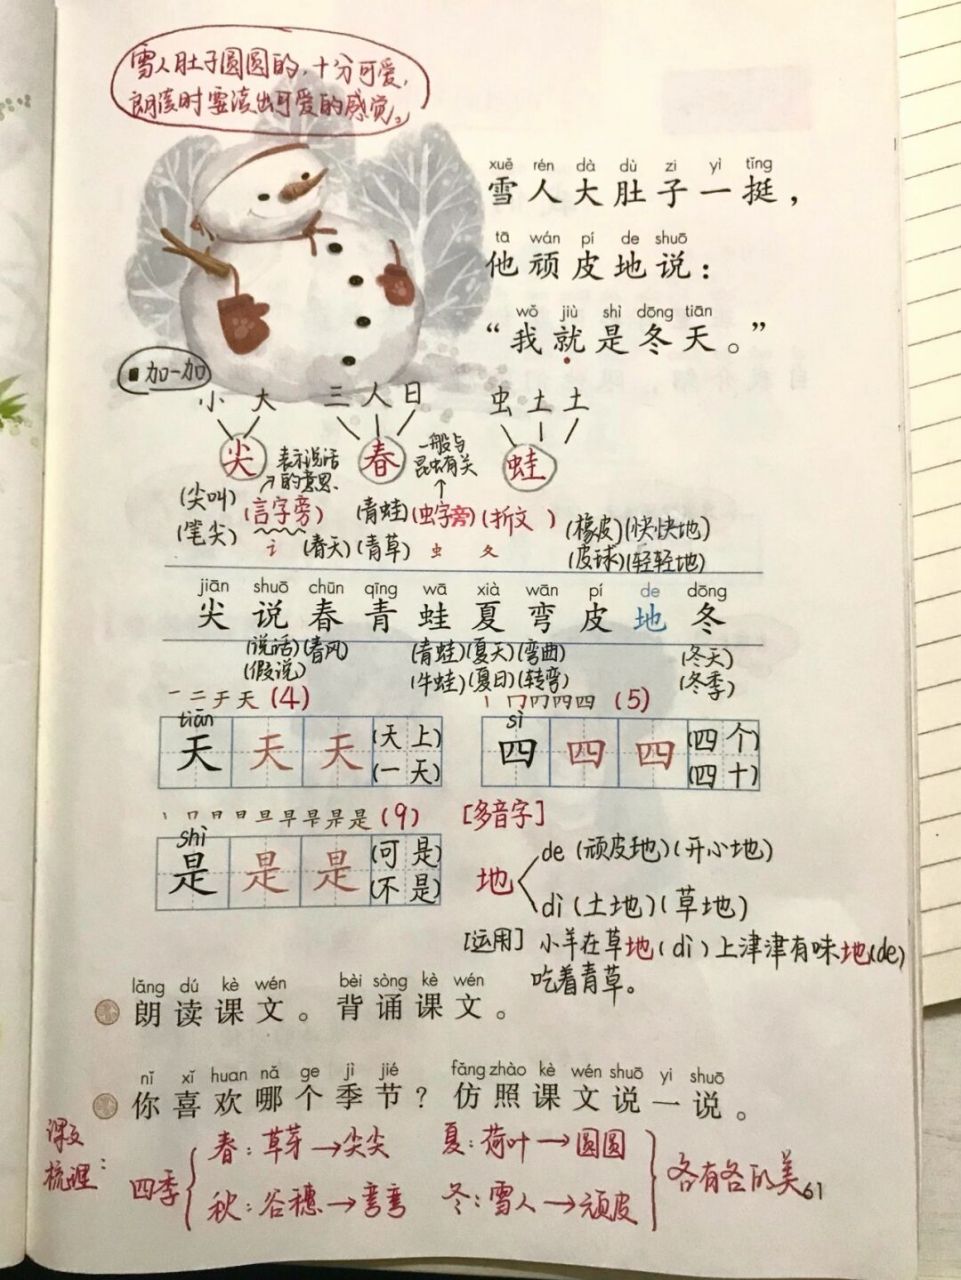 雪人肚子圆圆的，十分可爱，
朗读时要读出可爱的感觉。
xuě rén dà dù zi yì tǐng
雪人大肚子一挺，
tā wán pí de shuō
他顽皮地说：
wǒ jiù shì dōng tiān
“我就是冬天。”
■加一加
小 大 三 人 日 虫 土 土
尖 春 蛙
表示说话的意思.
一般与昆虫有关
(尖叫) (言字旁) (青蛙) (虫字旁) (折文 ) (橡皮) (快快地)
(笔尖) 讠 (春天) (青草) 虫 夂 (皮球) (轻轻地)
jiān shuō chūn qīng wā xià wān pí de dōng
尖 说 春 青 蛙 夏 弯 皮 地 冬
(说话) (春风) (青蛙) (夏天) (弯曲) (冬天)
(假说) (牛蛙) (夏日) (转弯) (冬季)
一 二 チ 天 (4) 丨 冂 冂 四 四 (5)
tiān sì
天 天 天 (天上) 四 四 四 (四个)
(一天) (四十)
丨 冂 日 日 旦 早 早 昰 是 (9)
shì
是 是 是 (可是)
(不是)
[多音字]
地 de (顽皮地) (开心地)
dì (土地) (草地)
[运用] 小羊在草地(dì)上津津有味地(de)
吃着青草。
lǎng dú kè wén bèi sòng kè wén
朗读课文。背诵课文。
nǐ xǐ huan nǎ ge jì jié fǎng zhào kè wén shuō yi shuō
你喜欢哪个季节？仿照课文说一说。
课文梳理：
四季 春：草芽→尖尖 夏：荷叶→圆圆
秋：谷穗→弯弯 冬：雪人→顽皮
各有各的美
61